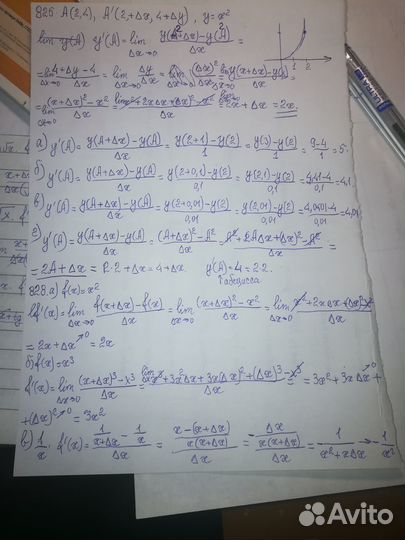 825 A(2,4), A'(2+Δx, 4+Δy), y=x²
lim y(A) y'(A)=lim Δx→0 (y(2+Δx)-y(2))/Δx =
=lim Δx→0 (4+Δy-4)/Δx = lim Δx→0 Δy/Δx = lim (y(x+Δx)-y(x))/Δx =
=lim Δx→0 ((x+Δx)²-x²)/Δx = lim (x²+2xΔx+(Δx)²-x²)/Δx = lim 2x+Δx = 2x.
а) y'(A)= (y(A+Δx)-y(A))/Δx = (y(2+1)-y(2))/1 = (y(3)-y(2))/1 = (9-4)/1 = 5.
б) y'(A)= (y(A+Δx)-y(A))/Δx = (y(2+0,1)-y(2))/0,1 = (y(2,1)-y(2))/0,1 = (4,41-4)/0,1 = 4,1.
в) y'(A)= (y(A+Δx)-y(A))/Δx = (y(2+0,01)-y(2))/0,01 = (y(2,01)-y(2))/0,01 = (4,0401-4)/0,01 = 4,01
г) y'(A)= (y(A+Δx)-y(A))/Δx = ((A+Δx)²-A²)/Δx = (A²+2AΔx+(Δx)²-A²)/Δx =
=2A+Δx = 2·2+Δx=4+Δx. y(A)=4=2·2.
↑абсцисса
828.а) f(x)=x²
f'(x)=lim Δx→0 (f(x+Δx)-f(x))/Δx = lim Δx→0 ((x+Δx)²-x²)/Δx = lim Δx→0 (x²+2xΔx+(Δx)²-x²)/Δx
=2x+Δx→0 = 2x
б) f(x)=x³
f'(x)=lim Δx→0 ((x+Δx)³-x³)/Δx = lim (x³+3x²Δx+3x(Δx)²+(Δx)³-x³)/Δx = 3x²+3xΔx→0+
+(Δx)²→0 = 3x²
в) 1/x. f'(x)= (1/(x+Δx) - 1/x)/Δx = ((x-(x+Δx))/(x(x+Δx)))/Δx = (-Δx/(x(x+Δx)))/Δx = -1/(x²+xΔx) → -1/x²
Avito